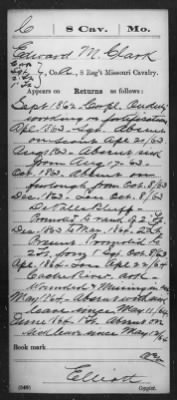 C 8 Cav. Mo.
Edward M. Clark
Sgt., Co. , 8 Reg't Missouri Cavalry.
Appears on Returns as follows:
Sept 1862 Corpl. On duty
working on fortification
Apl. 1863. Sgt. Absent
on scout Apr. 20/63
Aug 1863. Absent
from Aug 17. 63.
Oct. 1863. Absent on
furlough from Oct. 8/63
Dec. 1863. Oct. 8/63
Bluff
Promoted to rank of 2 Lt
Dec. 1863 to Mar. 1864. 2 Lt
Present Promoted to
2 Lt. from 1 Sgt. Oct. 8/63
Apl. 1864. Apr. 22/64
Cache River, Ark
Wounded & Missing in
May 1864. Absent without
leave since May 11/64
June 1864. 1 Lt. Absent on
leave since May 12/64
Book mark
Elliott
(546) Copyist.